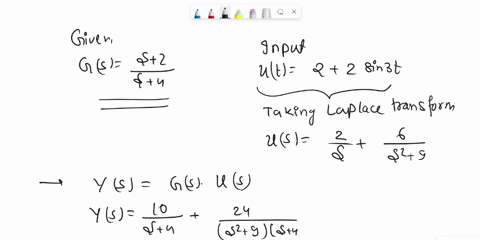 Given,
G(s) = s+2 / s+4
Input
u(t) = 2 + 2 sin3t
Taking Laplace transform
u(s) = 2/s + 6/s²+9
→ Y(s) = G(s). U(s)
Y(s) = 10/s+4 + 24/(s²+9)(s+4